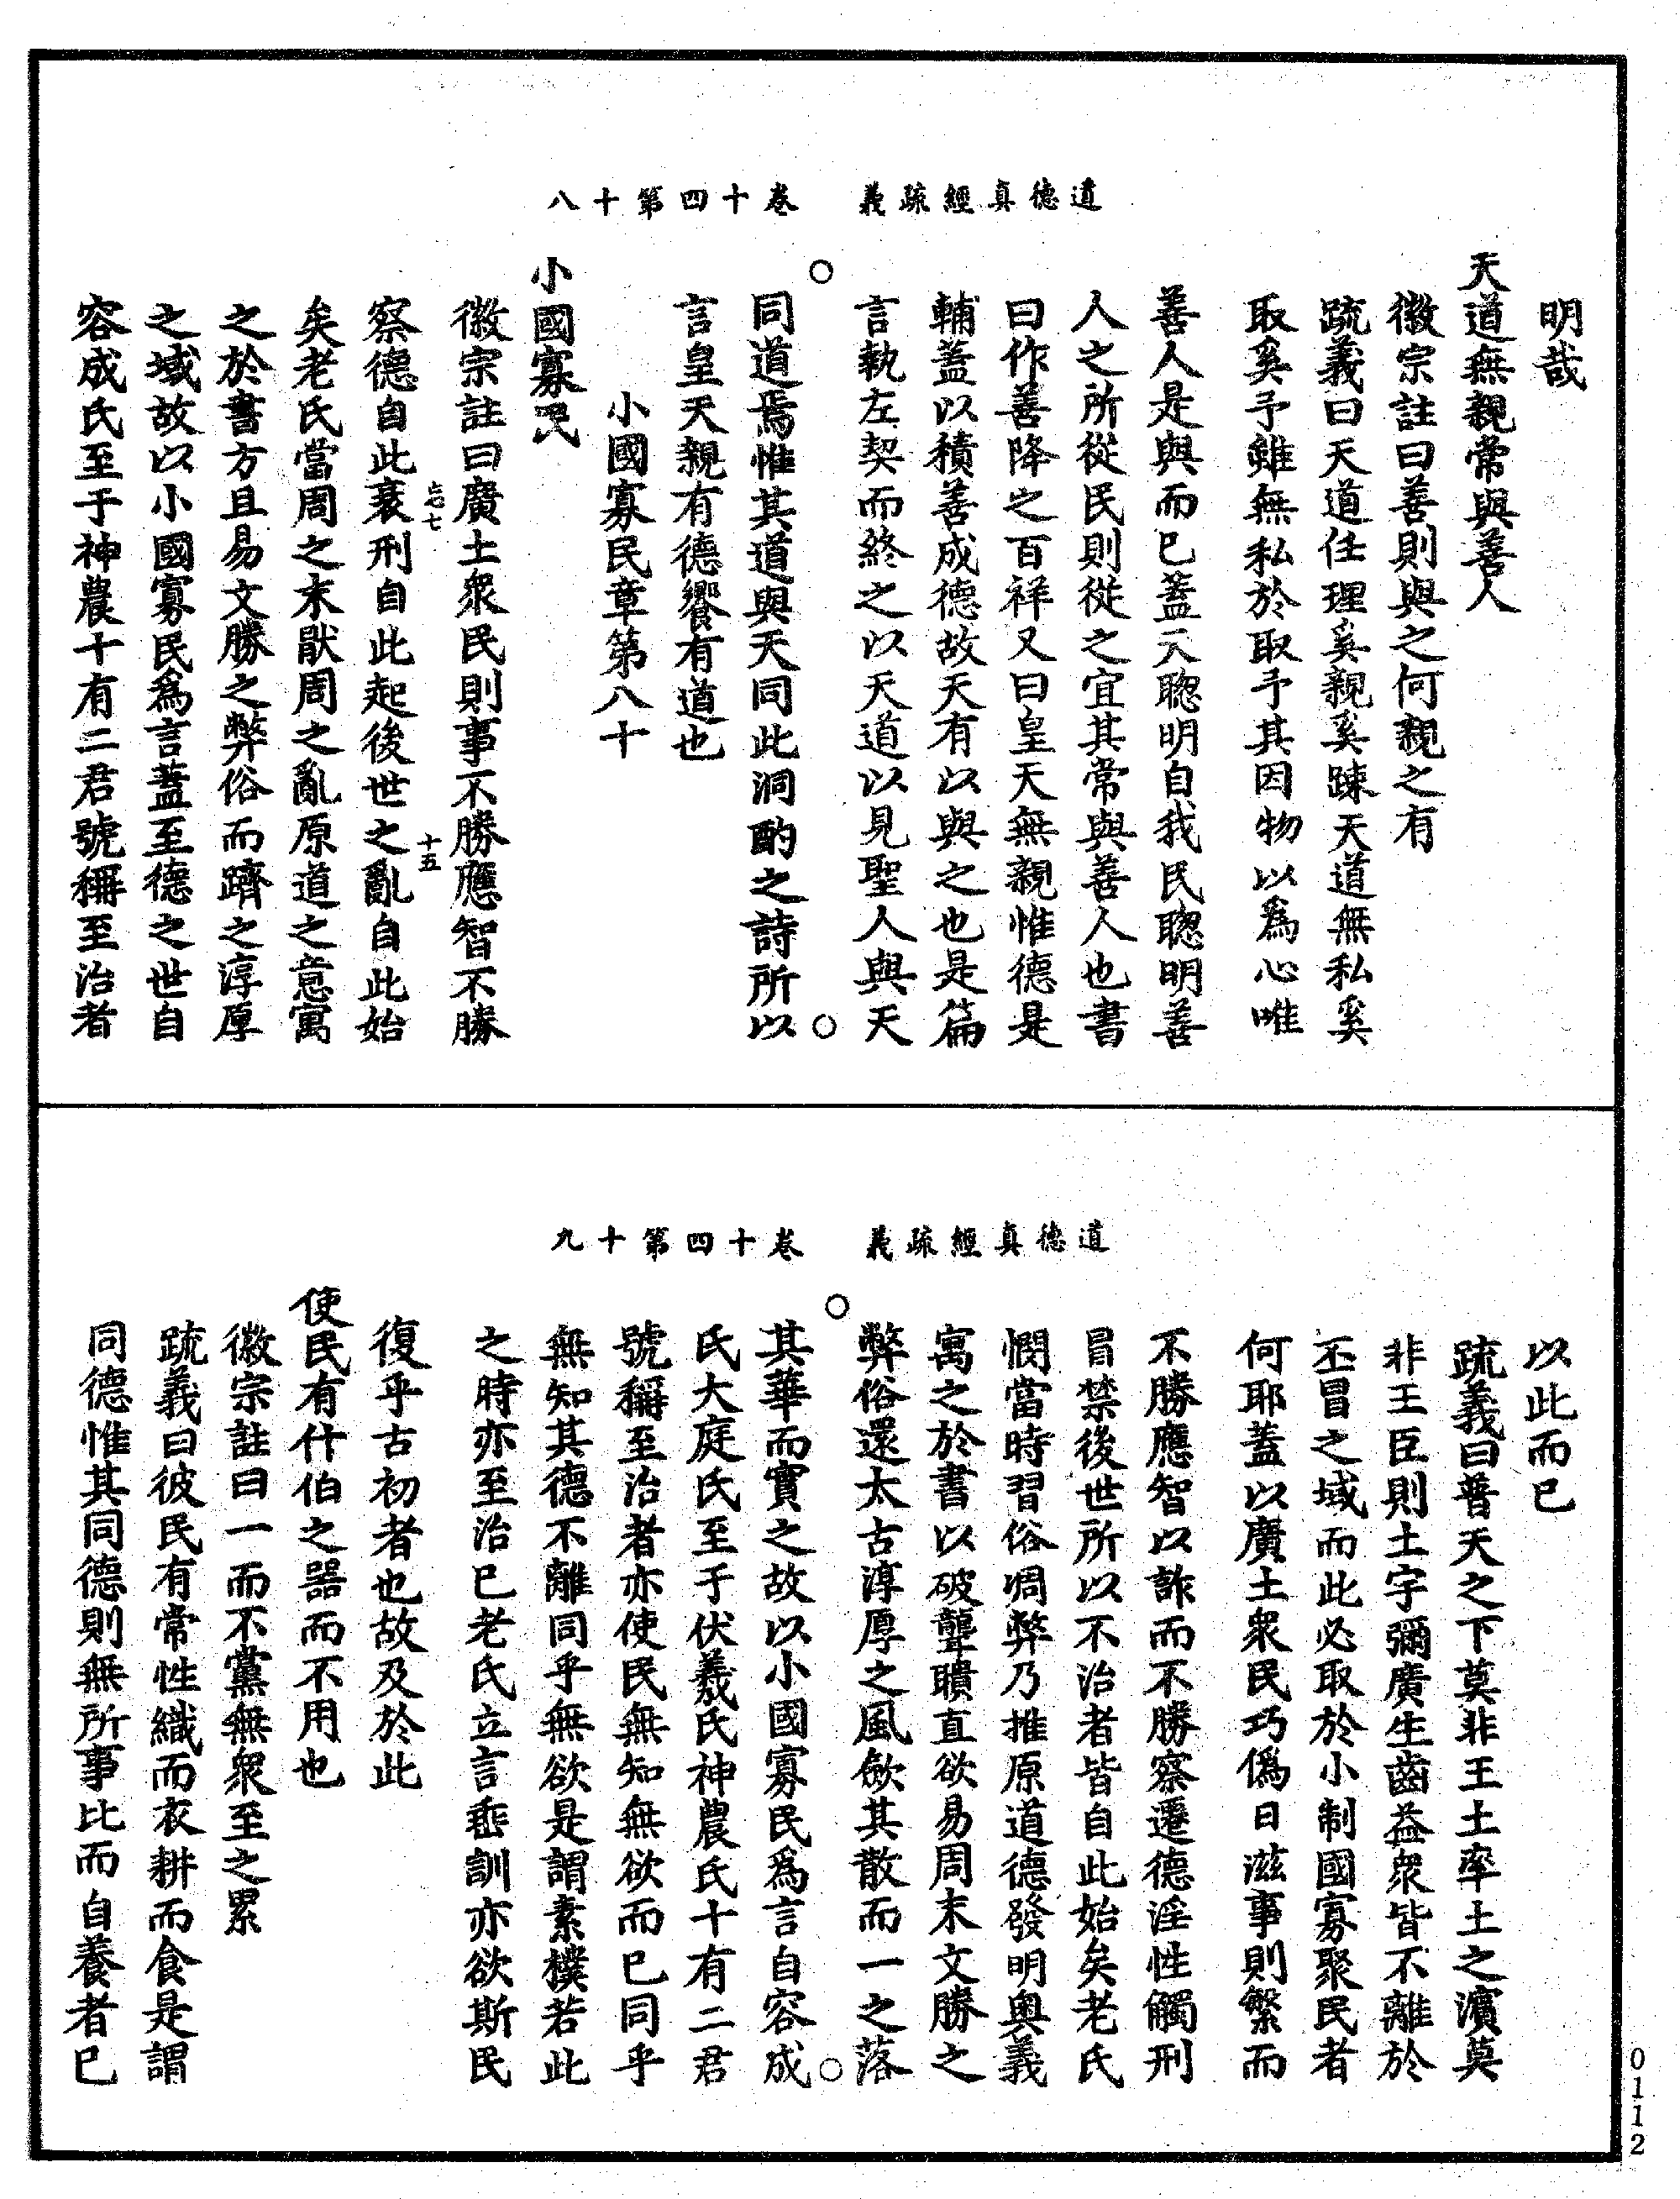 道德真經疏義　卷十四第十八
明哉
天道無親常與善人
徽宗註曰善則與之何親之有
疏義曰天道任理奚親奚踈天道無私奚
取奚予雖無私於取予其因物以爲心唯
善人是與而已蓋天聦明自我民聦明善
人之所從民則從之宜其常與善人也書
曰作善降之百祥又曰皇天無親惟德是
輔蓋以積善成德故天有以與之也是篇
言執左契而終之以天道以見聖人與天
○同道焉惟其道與天同此泂酌之詩所以○
言皇天親有德饗有道也
小國寡民章第八十
小國寡民
徽宗註曰廣土衆民則事不勝應智不勝
十五
察德自此衰刑自此起後世之亂自此始
矣老氏當周之末猒周之亂原道之意寓
之於書方且易文勝之弊俗而躋之淳厚
之域故以小國寡民爲言蓋至德之世自
容成氏至于神農十有二君號稱至治者
道德真經疏義　卷十四第十九
以此而已
疏義曰普天之下莫非王土率土之濱莫
非王臣則土宇彌廣生齒益衆皆不離於
丕冒之域而此必取於小制國寡聚民者
何耶蓋以廣土衆民巧僞日滋事則繁而
不勝應智以詐而不勝察遷德淫性觸刑
冒禁後世所以不治者皆自此始矣老氏
憫當時習俗凋弊乃推原道德發明奧義
寓之於書以破聾聵直欲易周末文勝之
弊俗還太古淳厚之風斂其散而一之落
○其華而實之故以小國寡民爲言自容成○
氏大庭氏至于伏羲氏神農氏十有二君
號稱至治者亦使民無知無欲而已同乎
無知其德不離同乎無欲是謂素樸若此
之時亦至治已老氏立言垂訓亦欲斯民
復乎古初者也故及於此
使民有什伯之器而不用也
徽宗註曰一而不黨無衆至之累
疏義曰彼民有常性織而衣耕而食是謂
同德惟其同德則無所事比而自養者已
0112